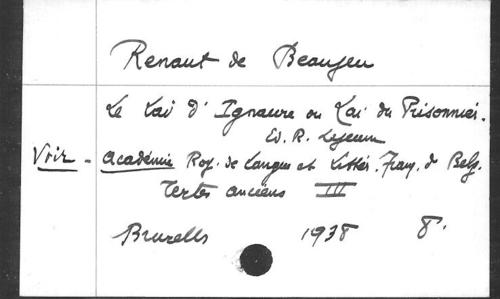 Renaut de Beaujeu
Le Lai d'Ignaure ou Lai du Prisonnier.
Ed. R. Lejeune
Voir - Académie Roy. de Langue et Littér. Franç. de Belg.
Textes anciens III
Bruxelles 1938 8°.